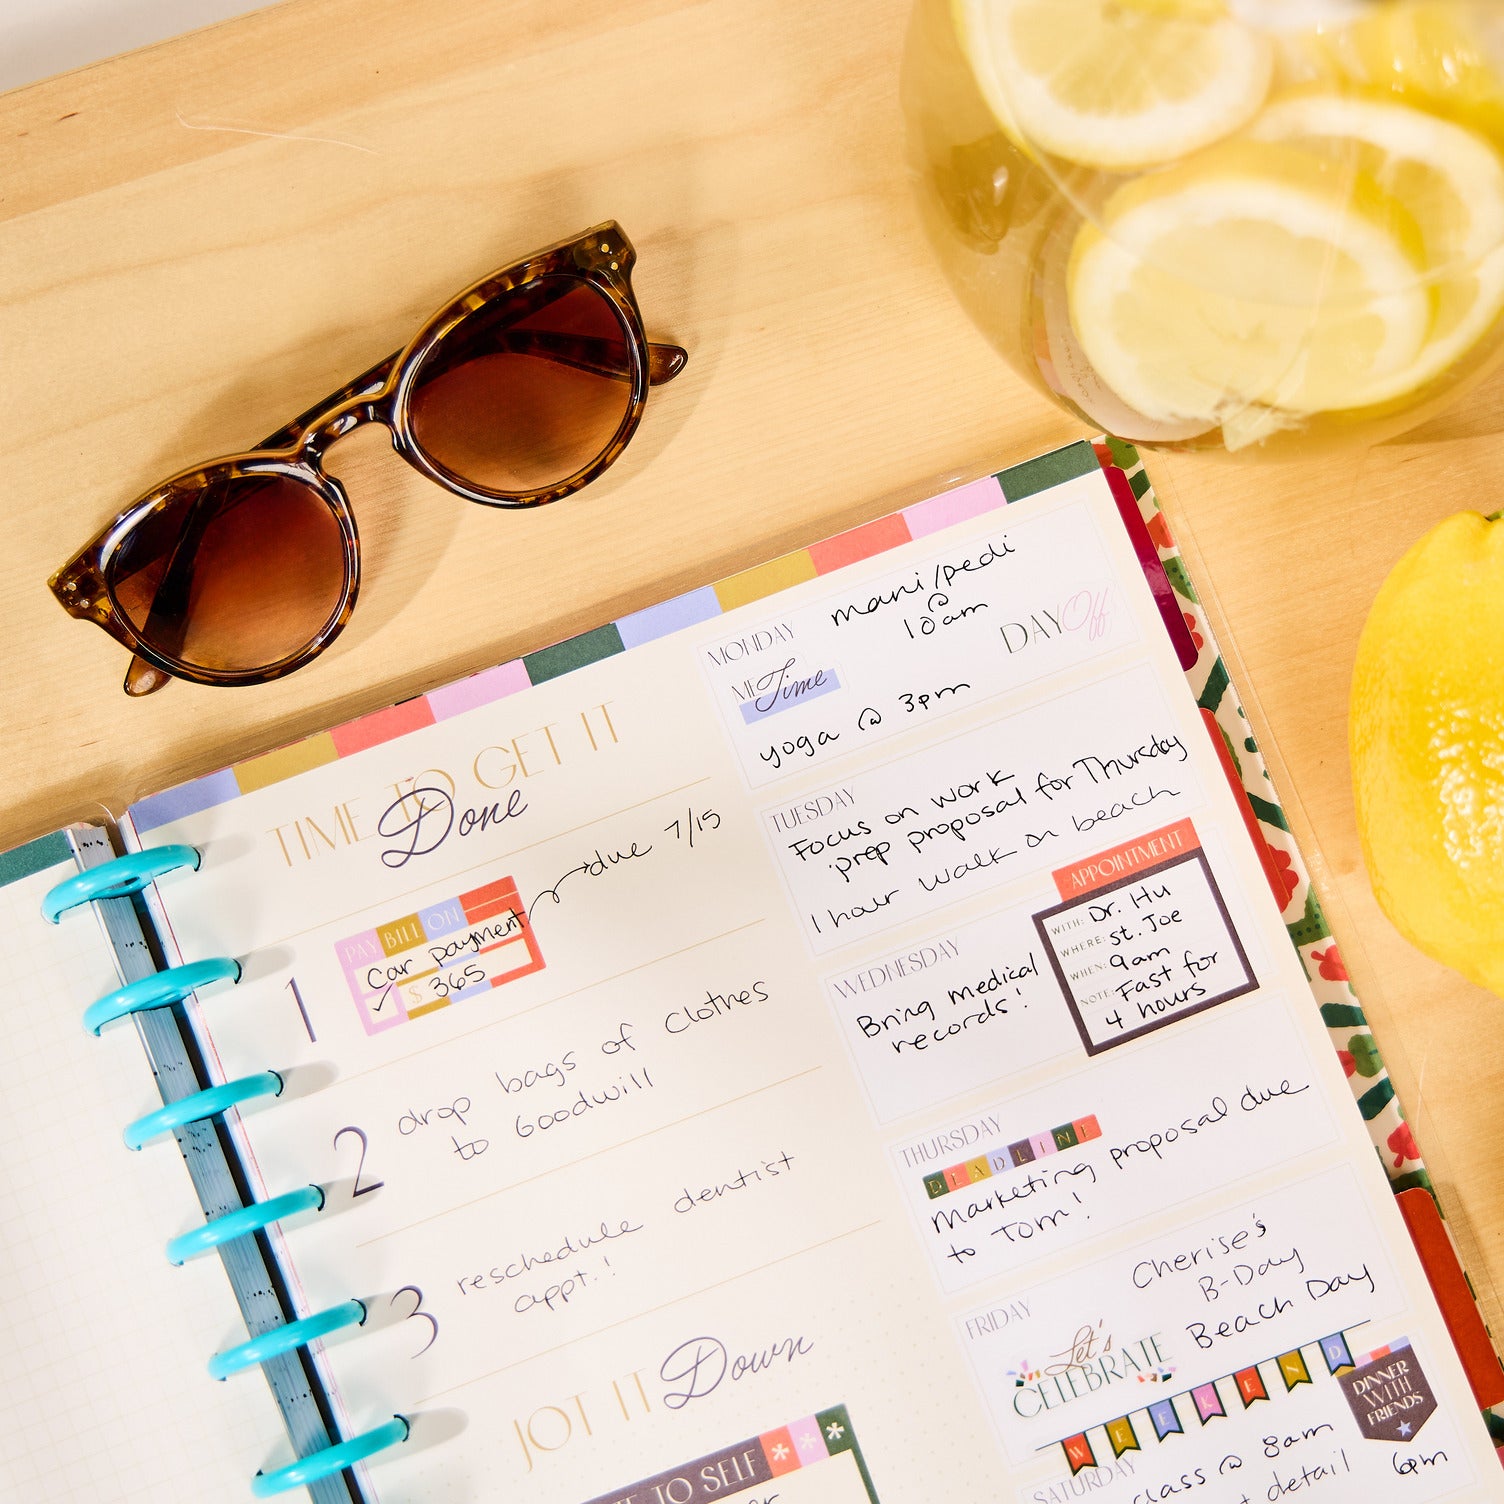 TIME TO GET IT
Done
1
PAY BILL ON
car payment
✓ $ 365
due 7/15
2
drop bags of clothes
to Goodwill
3
reschedule dentist
appt.!
JOT IT Down
TO SELF
MONDAY
mani/pedi
@
10am
DAY Off
ME Time
yoga @ 3pm
TUESDAY
Focus on work
prep proposal for Thursday
1 hour walk on beach
WEDNESDAY
Bring medical
records!
APPOINTMENT
WITH: Dr. Hu
WHERE: St. Joe
WHEN: 9am
NOTE: Fast for
4 hours
THURSDAY
DEADLINE
Marketing proposal due
to Tom!
FRIDAY
Cherise's
B-Day
Beach Day
Let's
CELEBRATE
WEEKEND
DINNER
WITH
FRIENDS
6pm
SATURDAY
class @ 8am
detail